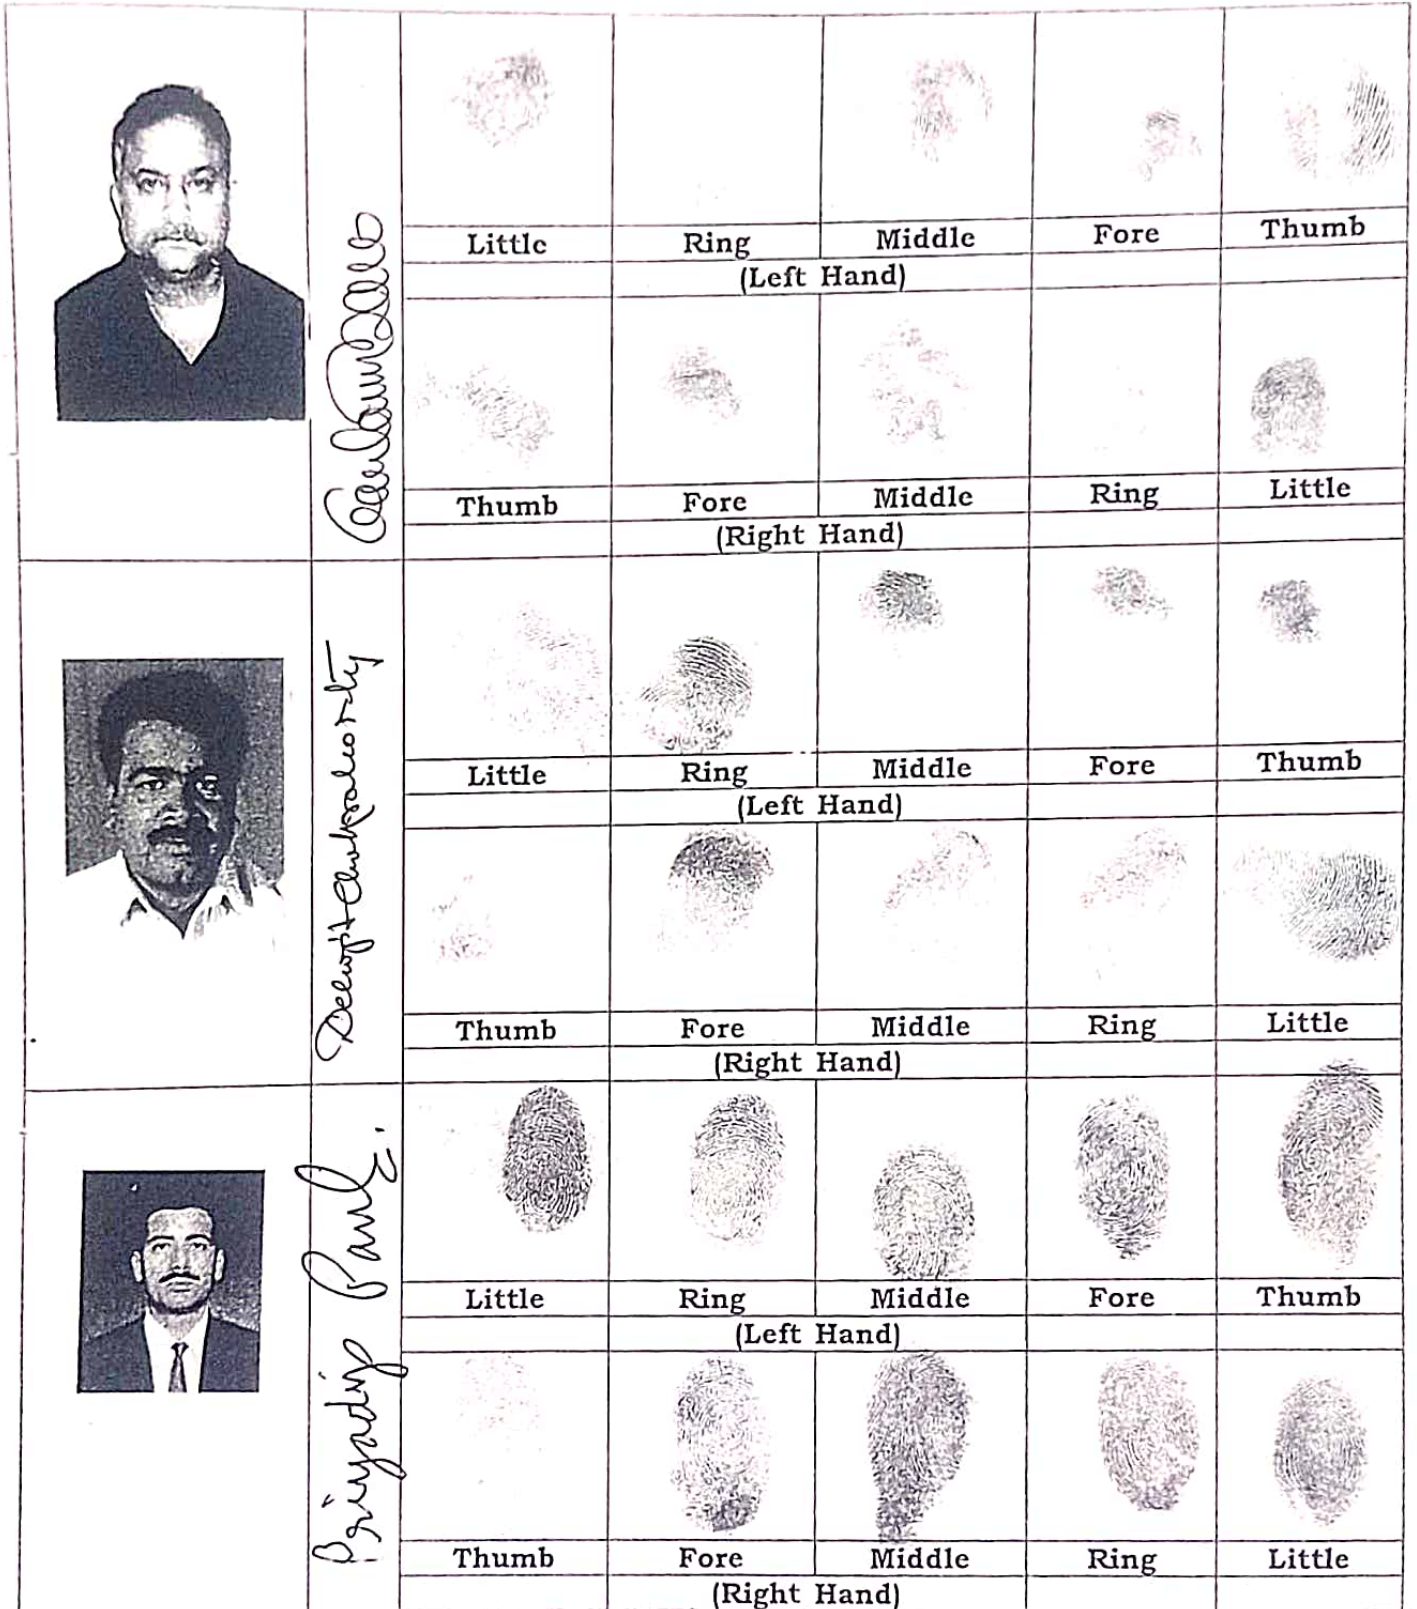 Little Ring Middle Fore Thumb
(Left Hand)
Thumb Fore Middle Ring Little
(Right Hand)
Little Ring Middle Fore Thumb
(Left Hand)
Thumb Fore Middle Ring Little
(Right Hand)
Priyadip Paul.
Little Ring Middle Fore Thumb
(Left Hand)
Thumb Fore Middle Ring Little
(Right Hand)